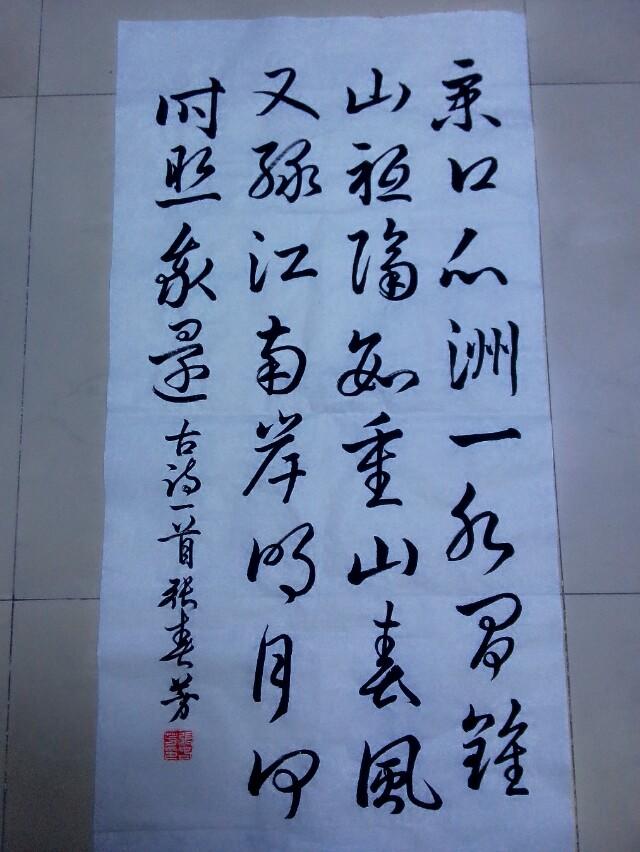 京口瓜洲一水間鐘
山祗隔數重山春風
又綠江南岸明月何
時照我還 古詩一首 張春芳